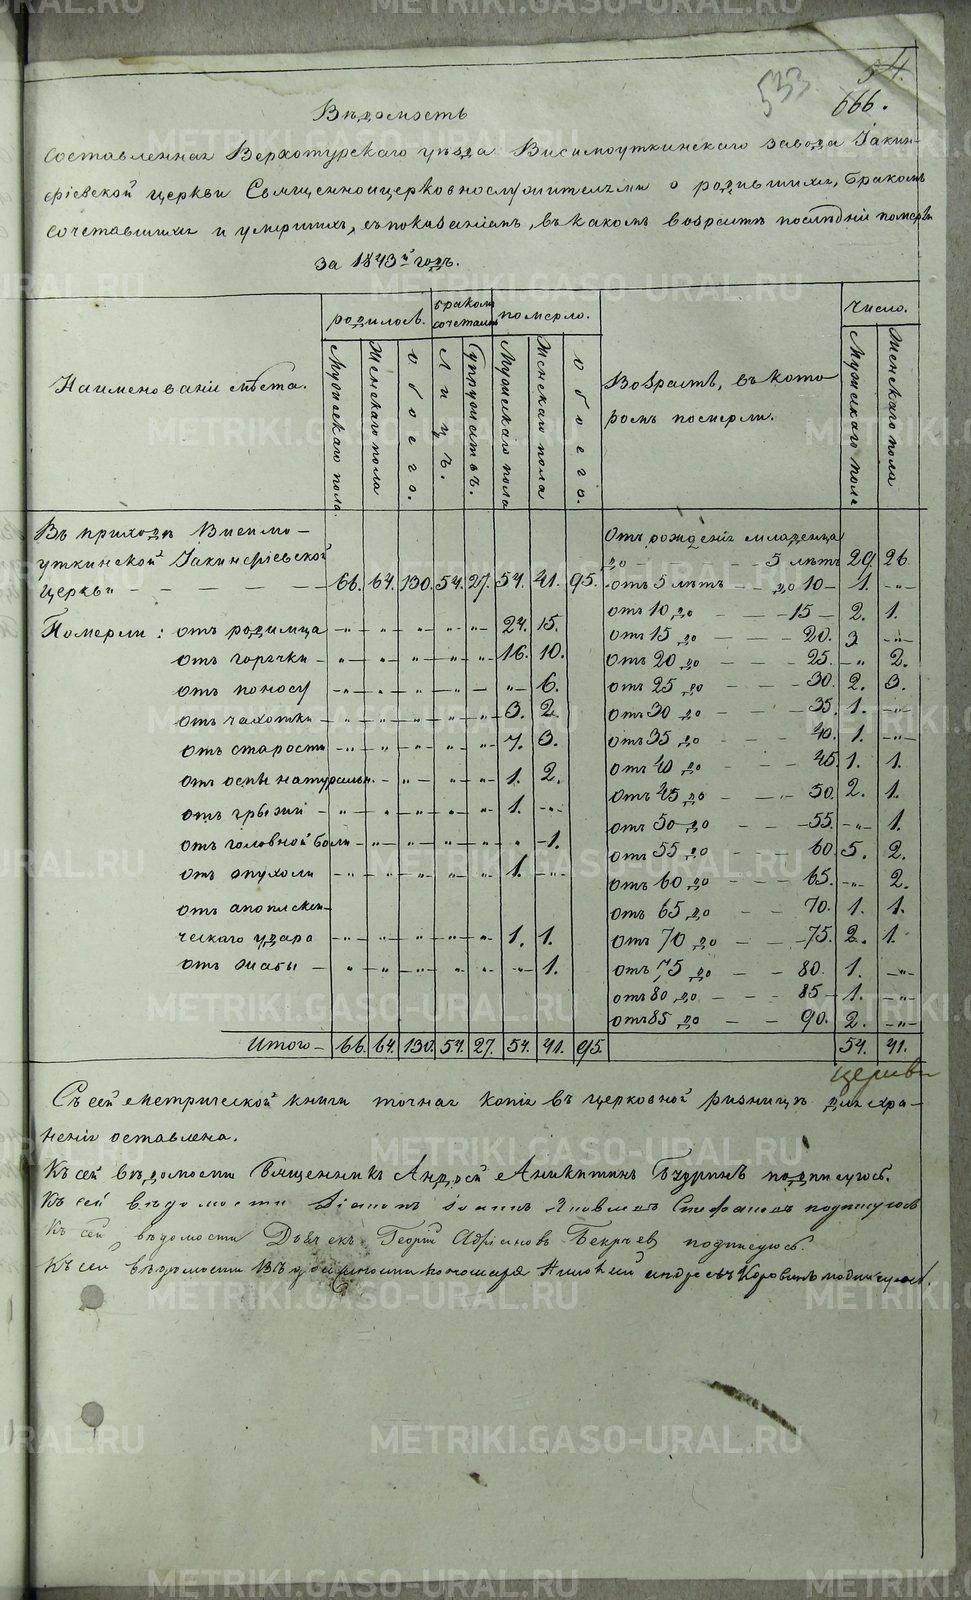 54.
533
666.
Вѣдомость
составленная Верхотурскаго уѣзда Висимоуткинскаго завода Iакин-
фiевской церкви Священноцерковнослужителями о родившихъ, бракомъ
сочетавшихъ и умершихъ, съ показанiемъ, въ какомъ возрастѣ послѣднiи померли
за 1843й годъ.
Наименованiи мѣста.
родилось.
бракомъ сочеталось
померло.
Возрастъ, въ кото
ромъ померли.
Число.
Мужескаго пола.
Женскаго пола
Обоего.
Лицъ.
Супружествъ.
Мужескаго пола
Женскаго пола
Обоего.
Мужскаго пола
Женскаго пола
Въ приходѣ Висимо-
уткинской Iакинфiевской
церкви — 66. 64. 130. 54. 27. 54. 41. 95.
Померли: отъ родимца — „ — „ — „ — „ — „ — 24. 15.
отъ горячки — „ — „ — „ — „ — „ — 16. 10.
отъ поносу — „ — „ — „ — „ — „ — „ — 6.
отъ чахотки — „ — „ — „ — „ — „ — 3. 2.
отъ старости — „ — „ — „ — „ — „ — 7. 3.
отъ оспы натуральн. — „ — „ — „ — „ — 1. 2.
отъ грыжи — „ — „ — „ — „ — „ — 1. — „ —
отъ головной боли — „ — „ — „ — „ — „ — „ — 1.
отъ опухоли — „ — „ — „ — „ — „ — 1. — „ —
отъ апоплекси-
ческаго удара — „ — „ — „ — „ — „ — 1. 1.
отъ жабы — „ — „ — „ — „ — „ — „ — 1.
Итого — 66. 64. 130. 54. 27. 54. 41. 95.
Отъ рожденiя младенца
до — 5 лѣтъ 29. 26.
отъ 5 лѣтъ — до 10 — 1. — „ —
отъ 10 до — 15 — 2. 1.
отъ 15 до — 20. 3 — „ —
отъ 20 до — 25. — „ 2.
отъ 25 до — 30. 2. 3.
отъ 30 до — 35. 1. — „ —
отъ 35 до — 40. 1. — „ —
отъ 40 до — 45. 1. 1.
отъ 45 до — 50. 2. 1.
отъ 50 до — 55. — „ — 1.
отъ 55 до — 60. 5. 2.
отъ 60 до — 65. — „ — 2.
отъ 65 до — 70. 1. 1.
отъ 70 до — 75. 2. 1.
отъ 75 до — 80. 1. — „ —
отъ 80 до — 85 — 1. — „ —
отъ 85 до — 90. 2. — „ —
54. 41.
церкви
Съ сей метрической книги точная копiя въ церковной ризницѣ для хра-
ненiя оставлена.
Къ сей вѣдомости Священникъ Андрей Аникитинъ Бчуринъ подписуюсь.
Къ сей вѣдомости Дiаконъ Iоаннъ Яковлевъ Стефановъ подписуюсь
Къ сей вѣдомости Дьячекъ Георгiй Адрiановъ Бекрчев подписуюсь.
Къ сей вѣдомости Въ должности пономаря Андреевъ Коровинъ подписуюсь.
METRIKI.GASO-URAL.RU